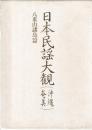 日本民謡大観（沖縄奄美）
八重山諸島篇